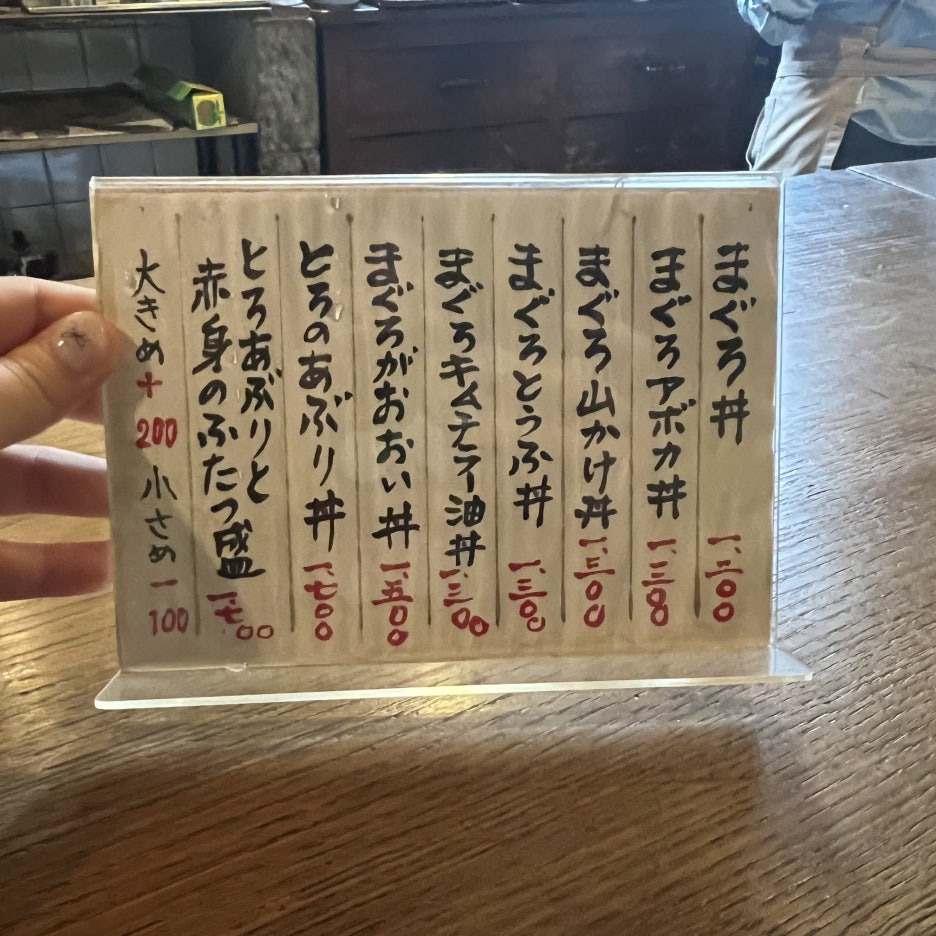 まぐろ丼 一、二〇〇
まぐろアボカ丼 一、三〇〇
まぐろ山かけ丼 一、三〇〇
まぐろとうふ丼 一、三〇〇
まぐろキムチラー油丼 一、三〇〇
まぐろがおおい丼 一、五〇〇
とろのあぶり丼 一、七〇〇
とろあぶりと
赤身のふたつ盛 一、七〇〇
大きめ+200 小さめ-100